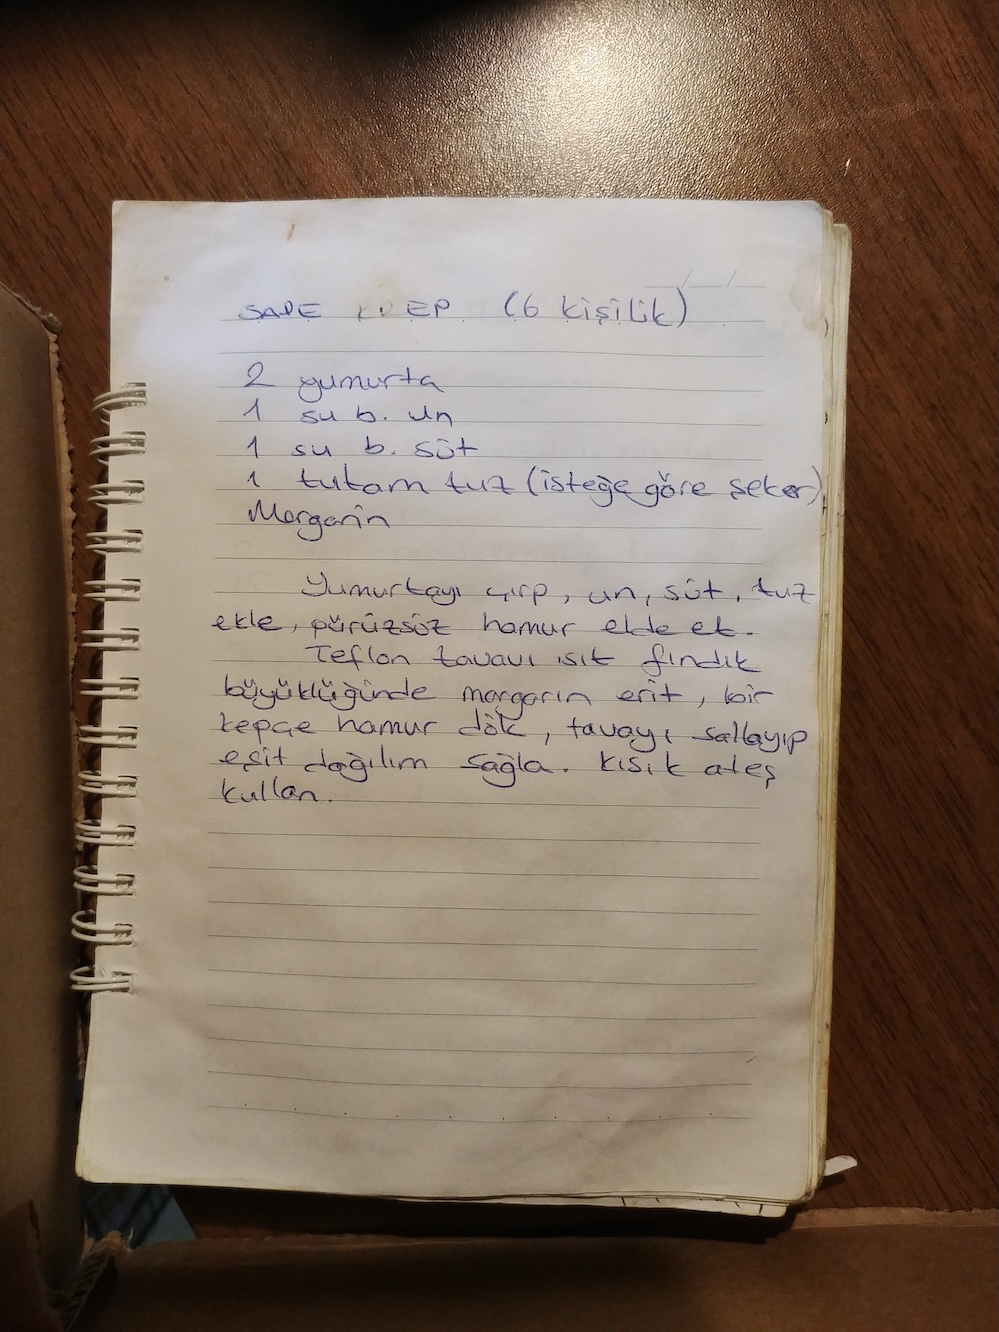 SADE KREP (6 kişilik)
2 yumurta
1 su b. un
1 su b. süt
1 tutam tuz (isteğe göre şeker)
Margarin
Yumurtayı çırp, un, süt, tuz
ekle, pürüzsüz hamur elde et.
Teflon tavayı ısıt fındık
büyüklüğünde margarin erit, bir
kepçe hamur dök, tavayı sallayıp
eşit dağılım sağla. Kısık ateş
kullan.